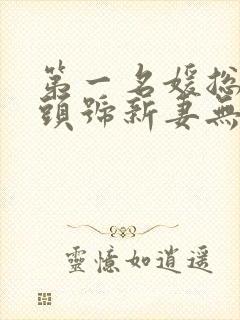 第一名媛總
頭號新妻無
靈憶如逍遥